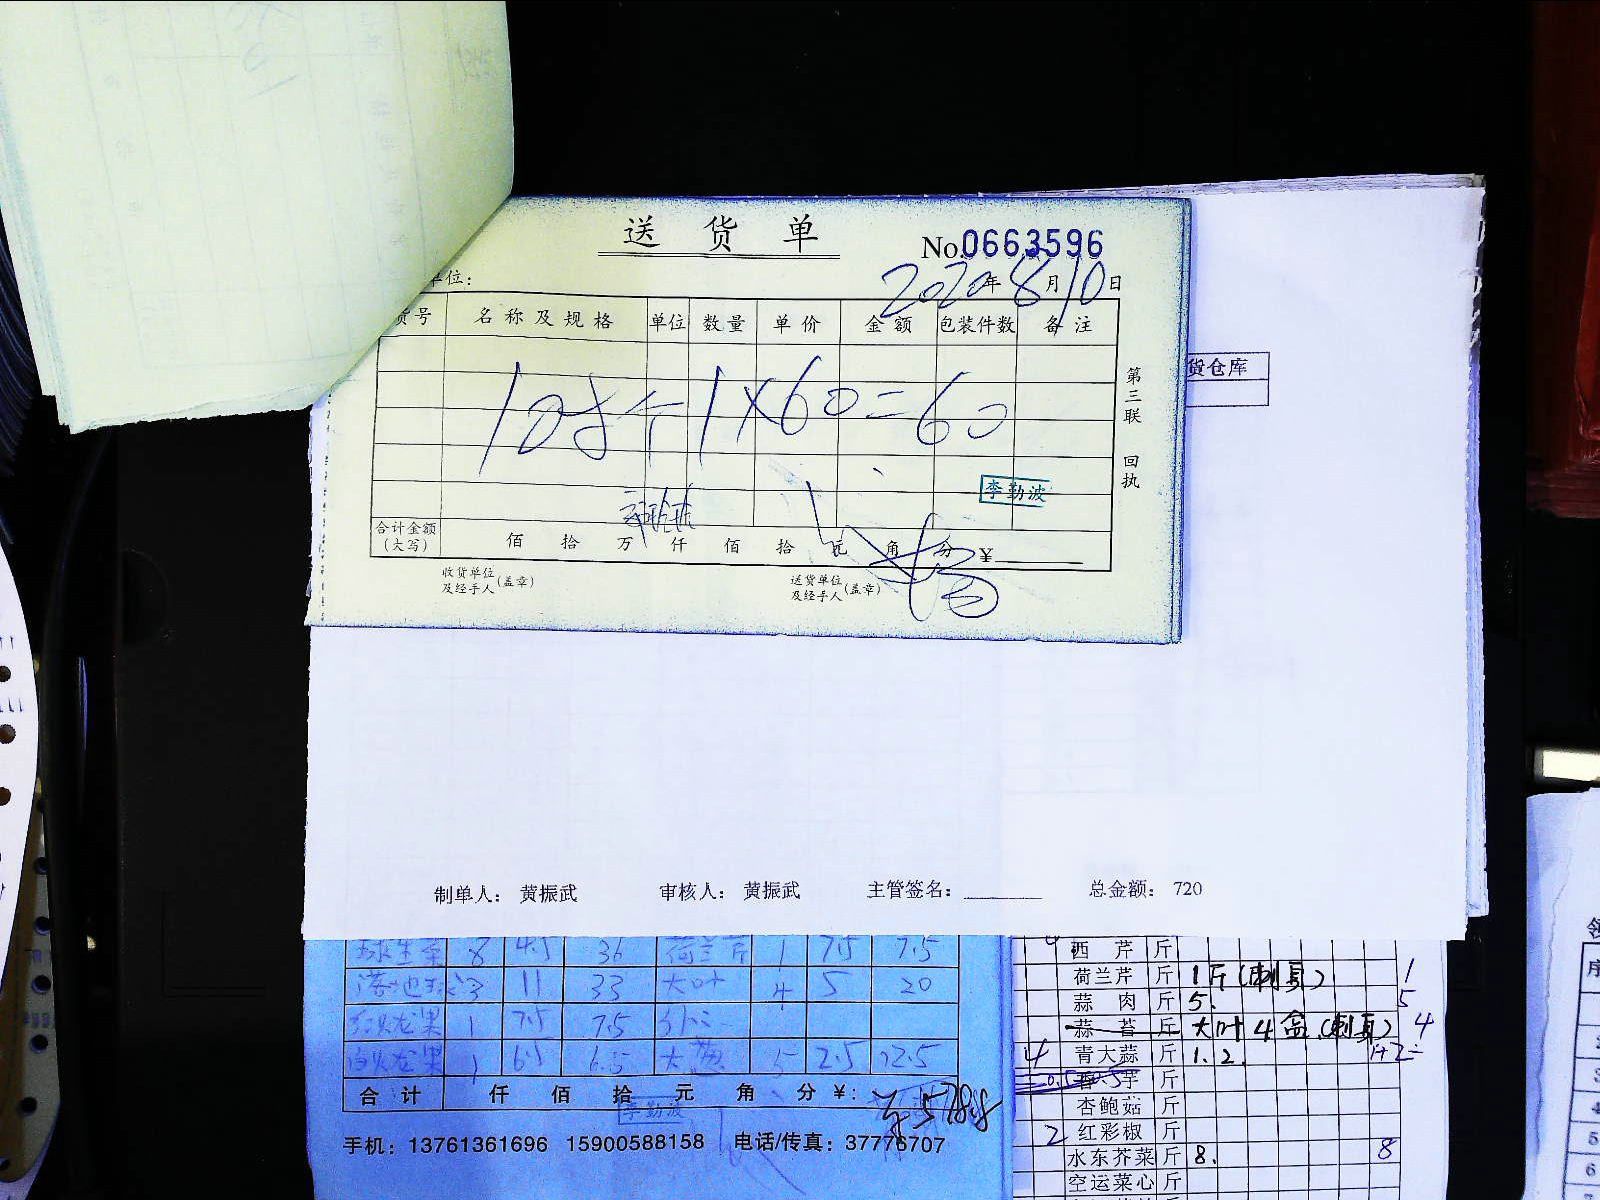 送 货 单
No.0663596
单位:
2020年8月10日
货号 名称及规格 单位 数量 单价 金额 包装件数 备注
1×60=60
第三联 回执
李勤波
合计金额(大写) 佰 拾 万 仟 佰 拾 元 角 分 ¥
收货单位及经手人(盖章) 送货单位及经手人(盖章)
货仓库
制单人: 黄振武 审核人: 黄振武 主管签名: 总金额: 720
球生菜 8 4.5 36 荷兰芹 1 7.5 7.5
3 11 33 大叶 4 5 20
红火龙果 1 7.5 7.5
白火龙果 1 6.5 6.5 5 2.5 12.5
合计 仟 佰 拾 元 角 分 ¥:
李勤波
手机: 13761361696 15900588158 电话/传真: 37776707
西芹 斤
荷兰芹 斤 1斤(刺身) 1
蒜肉 斤 5. 5
蒜苔 斤 大叶4盒(刺身) 4
4 青大蒜 斤 1.2. 1+2=
香芋 斤
杏鲍菇 斤
2 红彩椒 斤
水东芥菜 斤 8. 8
空运菜心 斤
领
序
5
6